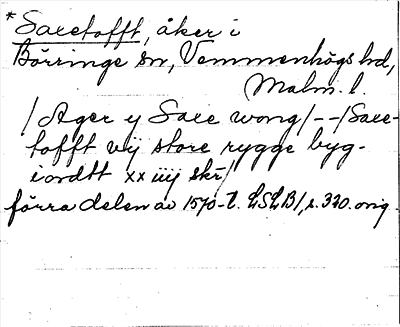 *Saxetofft, åker i
Börringe sn, Vemmenhögs hd,
Malm. l.
/Ager y Saxe wong/--/Saxe-
tofft vij store rygge byg-
iordtt xx iiij skr/
förra delen av 1570-t. LSLB1, s. 320. orig.